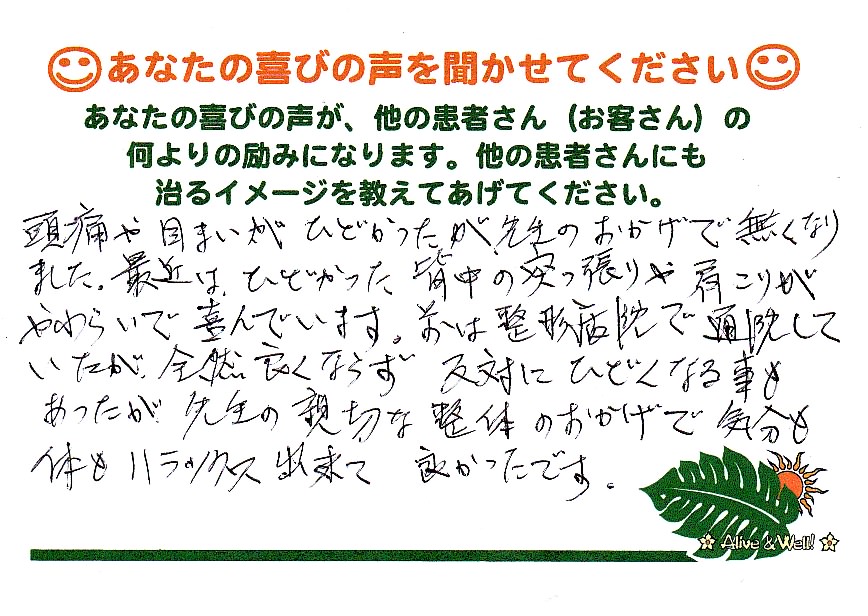 あなたの喜びの声を聞かせてください
あなたの喜びの声が、他の患者さん（お客さん）の
何よりの励みになります。他の患者さんにも
治るイメージを教えてあげてください。
頭痛や目まいが ひどかったが 先生のおかげで 無くなり
ました。最近は、ひどかった 背中の突っ張りや 肩こりが
やわらいで 喜んでいます。前は 整形病院で 通院して
いたが 全然良くならず 反対に ひどくなる事も
あったが 先生の 親切な 整体のおかげで 気分も
体も リラックス 出来て 良かったです。
Alive & Well!